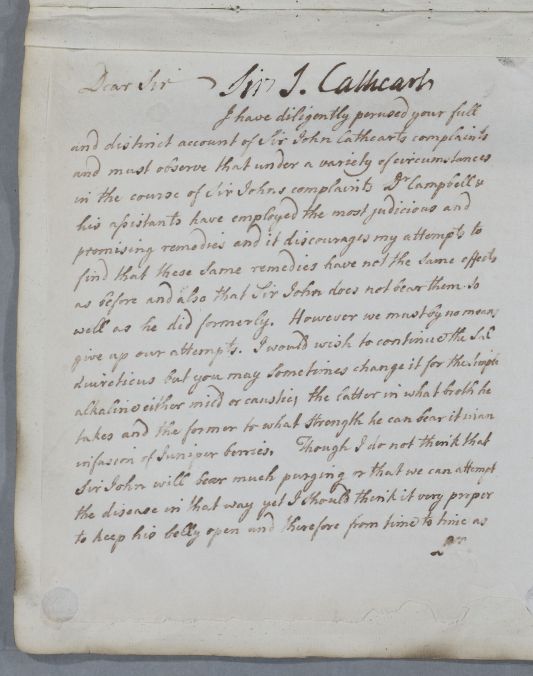 Dear Sir Sir J. Cathcart
I have diligently perused your full
and distinct account of Sir John Cathcarts complaints
and must observe that under a variety of circumstances
in the course of Sir Johns complaints Dr Campbell &
his assistants have employed the most judicious and
promising remedies and it discourages my attempts to
find that these same remedies have not the same effects
as before and also that Sir John does not bear them so
well as he did formerly. However we must by no means
give up our attempts. I would wish to continue the Sal
diureticus but you may sometimes change it for the Simple
alkaline either mild or caustic, the latter in what broth he
takes and the former to what strength he can bear it in an
infusion of Juniper berries. Though I do not think that
Sir John will bear much purging or that we can attempt
the disease in that way yet I should think it very proper
to keep his belly open and therefore from time to time as